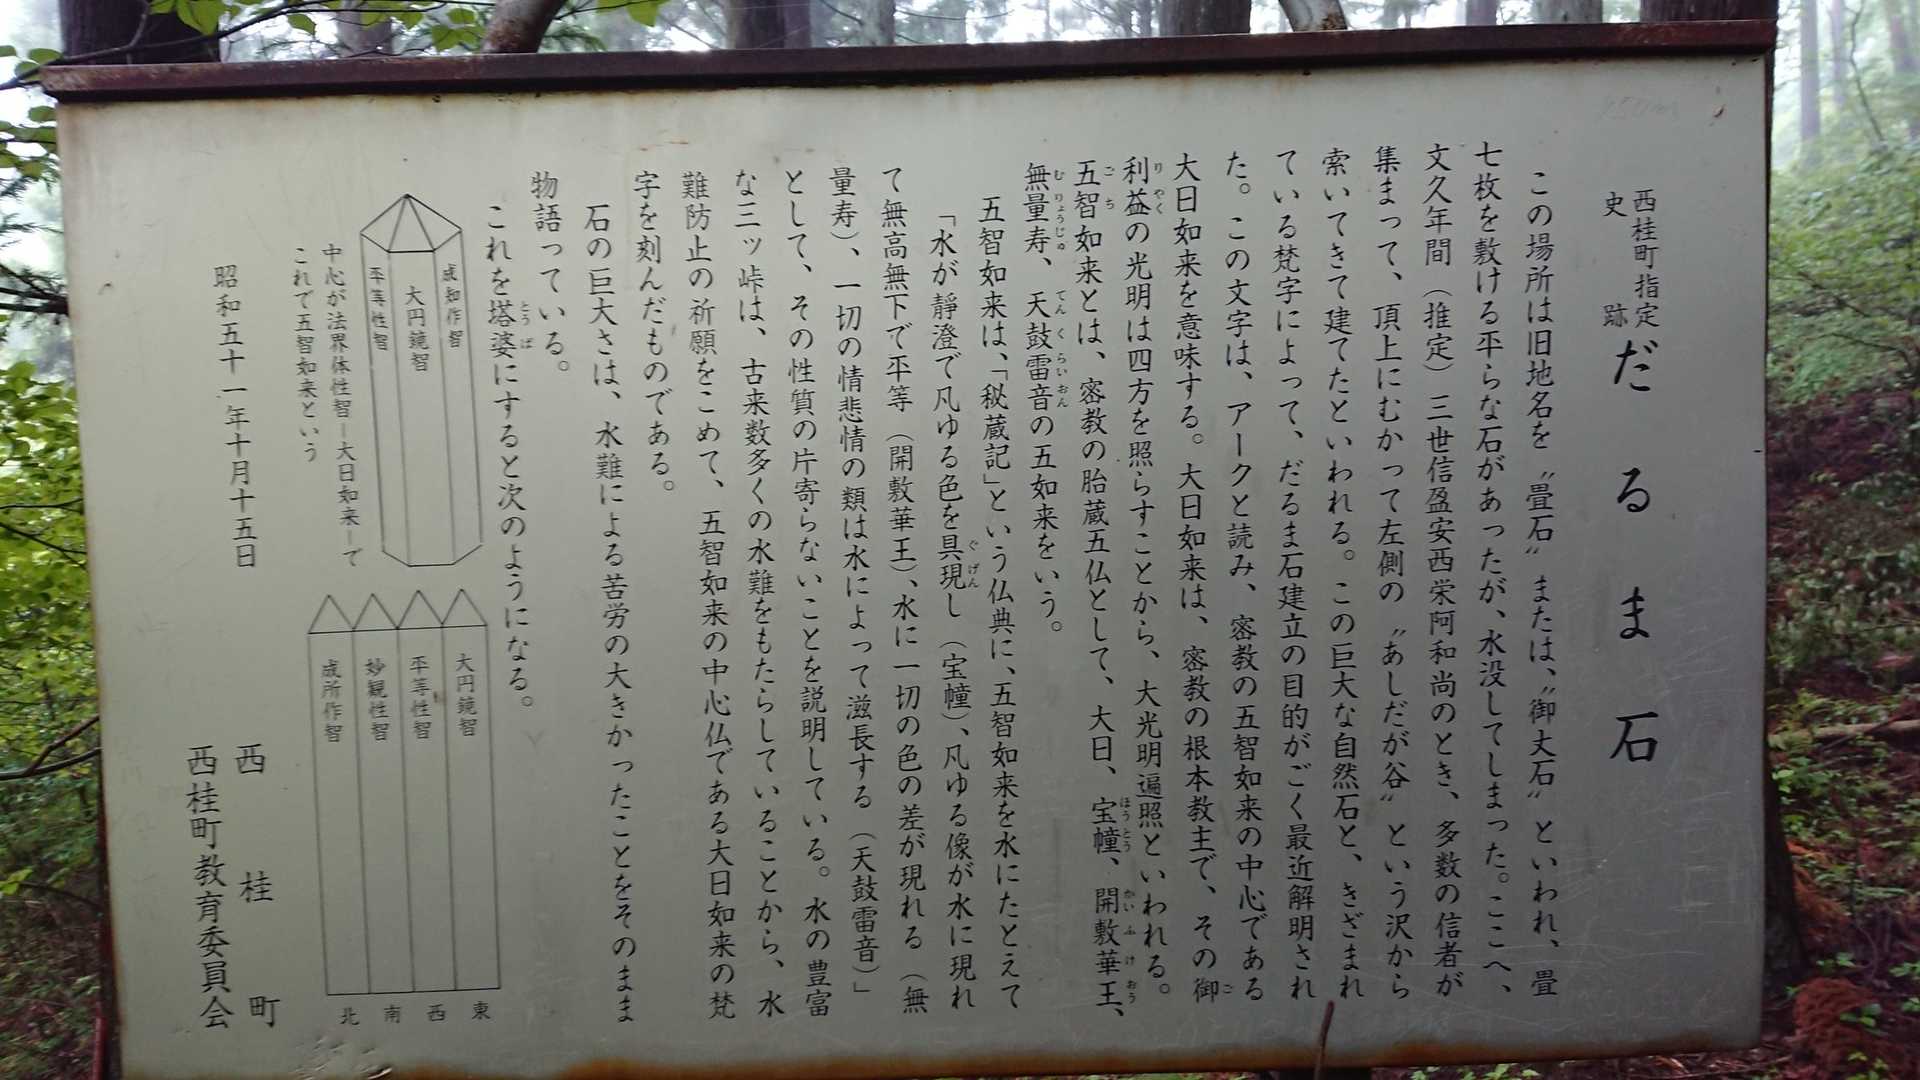 西桂町指定
史跡
だるま石
この場所は旧地名を〝畳石〟または、〝御丈石〟といわれ、畳
七枚を敷ける平らな石があったが、水没してしまった。ここへ、
文久年間（推定）三世信盈安西栄阿和尚のとき、多数の信者が
集まって、頂上にむかって左側の〝あしだが谷〟という沢から
索いてきて建てたといわれる。この巨大な自然石と、きざまれ
ている梵字によって、だるま石建立の目的がごく最近解明され
た。この文字は、アークと読み、密教の五智如来の中心である
大日如来を意味する。大日如来は、密教の根本教主で、その御
利益の光明は四方を照らすことから、大光明遍照といわれる。
五智如来とは、密教の胎蔵五仏として、大日、宝幢、開敷華王、
無量寿、天鼓雷音の五如来をいう。
五智如来は、「秘蔵記」という仏典に、五智如来を水にたとえて
「水が靜澄で凡ゆる色を具現し（宝幢）、凡ゆる像が水に現れ
て無高無下で平等（開敷華王）、水に一切の色の差が現れる（無
量寿）、一切の情悲情の類は水によって滋長する（天鼓雷音）」
として、その性質の片寄らないことを説明している。水の豊富
な三ッ峠は、古来数多くの水難をもたらしていることから、水
難防止の祈願をこめて、五智如来の中心仏である大日如来の梵
字を刻んだものである。
石の巨大さは、水難による苦労の大きかったことをそのまま
物語っている。
これを塔婆にすると次のようになる。
成知作智
大円鏡智
平等性智
中心が法界体性智ー大日如来ーで
これで五智如来という
大円鏡智
平等性智
妙観性智
成所作智
東
西
南
北
昭和五十一年十月十五日
西桂町
西桂町教育委員会